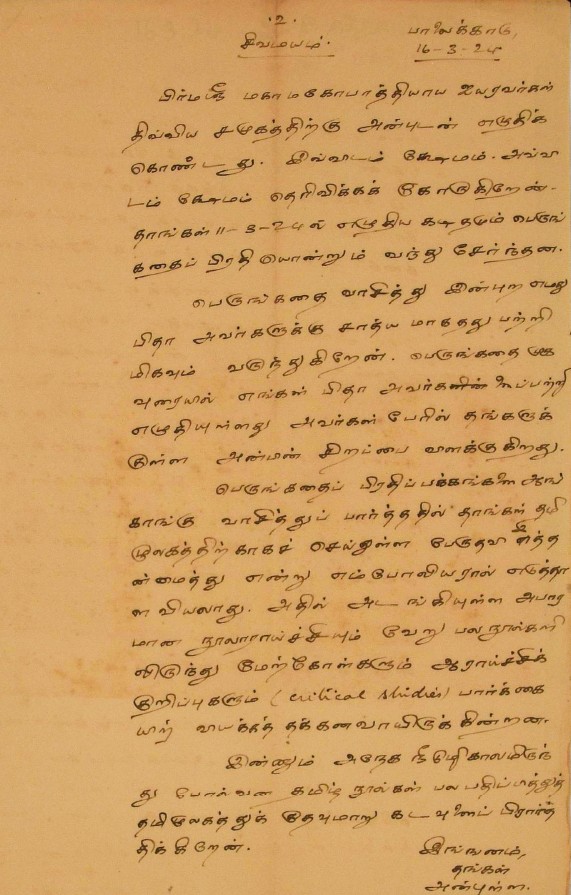 .2.
சிவமயம்.
பாலக்காடு,
16-3-24
பிர்மஸ்ரீ மகாமகோபாத்தியாய ஐயரவர்கள்
திவ்விய சமுகத்திற்கு அன்புடன் எழுதிக்
கொண்டது. இவ்விடம் க்ஷேமம். அவ்வி
டம் க்ஷேமம் தெரிவிக்கக் கோருகிறேன்.
தாங்கள் 11-3-24ல் எழுதிய கடிதமும் பெருங்
கதைப் பிரதியொன்றும் வந்து சேர்ந்தன.
பெருங்கதை வாசித்து இன்புற எமது
பிதா அவர்களுக்கு சாத்ய மாகாதது பற்றி
மிகவும் வருந்துகிறேன். பெருங்கதை முக
வுரையில் எங்கள் பிதா அவர்களின் பற்றி
எழுதியுள்ளது அவர்கள் பேரில் தங்களுக்
குள்ள அன்பின் சிறப்பை விளக்குகிறது.
பெருங்கதைப் பிரதிப் பக்கங்களை ஆங்
காங்கு வாசித்துப் பார்த்ததில் தாங்கள் தமி
ழுலகத்திற்காகச் செய்துள்ள பேருதவி
என்று எம்போலியரால் எடுத்தா
ளவியலாது. அதில் அடங்கியுள்ள அபார
மான நூலாராய்ச்சியும் வேறு பலநூல்களி
லிருந்து மேற்கோள்களும் ஆராய்ச்சிக்
குறிப்புகளும் (critical studies) பார்க்கை
யில் வியக்கத் தக்கனவாயிருக்கின்றன.
இன்னும் அநேக நீடூழிகாலமிருந்
து போல்வன தமிழ் நூல்கள் பல பதிப்பித்துத்
தமிழுலகத்துக் குதவுமாறு கடவுளைப் பிரார்
திக்கிறேன்.
இங்ஙனம்,
தங்கள்
அன்புள்ள.